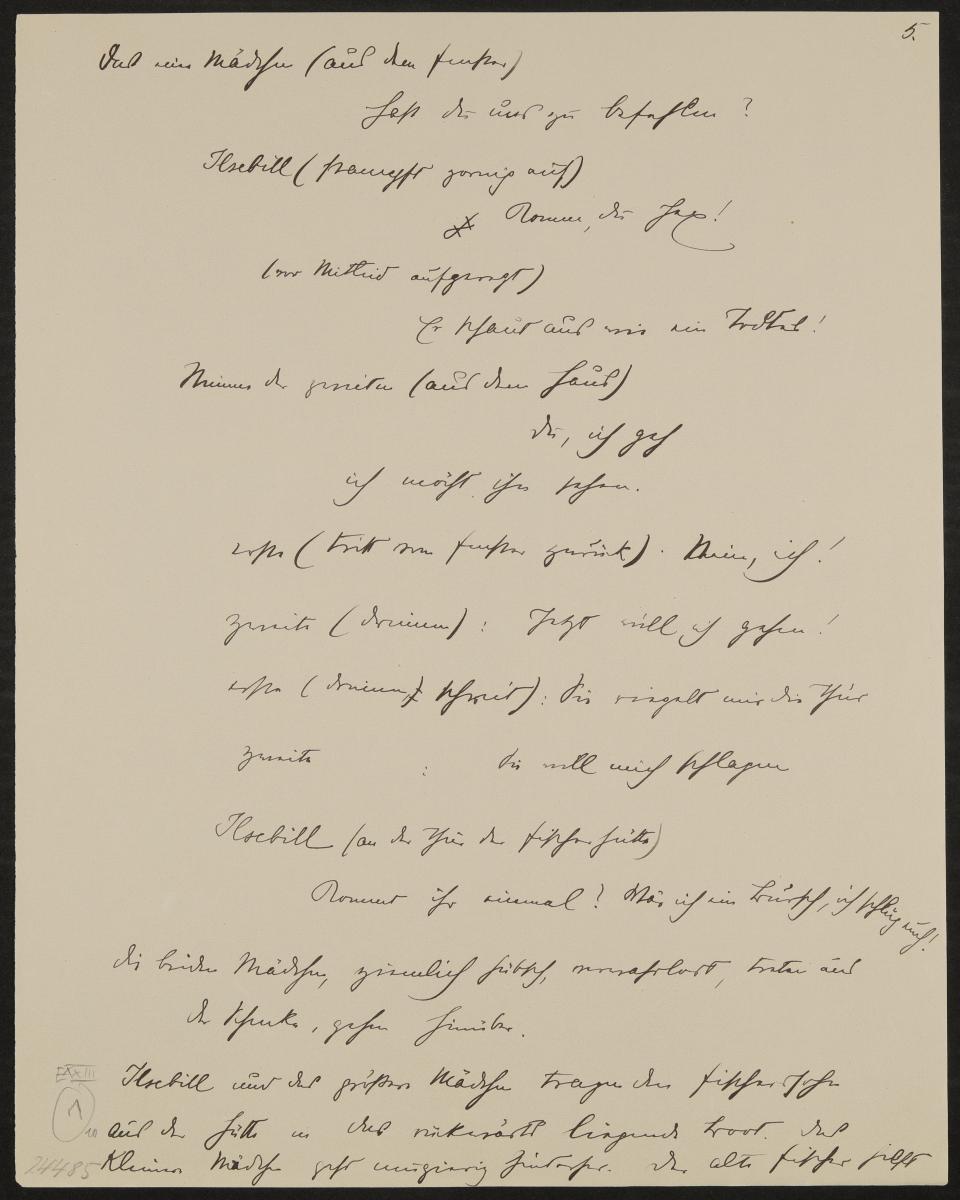 5.
Das eine Mädchen (aus dem Fenster)
Hast du uns zu befehlen?
Ilsebill (stampft zornig auf)
Komm, du Hex!
(vor Mitleid aufgeregt)
Er schaut aus wie ein Todter!
Stimme der zweiten (aus dem Haus)
du, ich geh
ich möcht ihn sehen.
erste (tritt vom Fenster zurück). Nein, ich!
zweite (drinnen): Jetzt will ich gehen!
erste (drinnen, schreit): Sie riegelt mir die Thür
zweite : Sie will mich schlagen
Ilsebill (an der Thür der Fischerhütte)
Kommt ihr einmal? Wär ich ein Bursch, ich schlüg euch!
die beiden Mädchen, ziemlich hübsch, verwahrlost, treten aus
der Schenke, gehen hinüber.
Ilsebill und das größere Mädchen tragen den Fischerssohn
aus der Hütte in das rückwärts liegende Boot. das
Kleinere Mädchen geht neugierig hinterher. Der alte Fischer hilft
24485